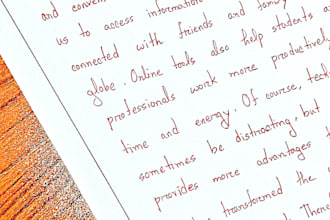 and conven
us to access information
connected with friends and family
globe. Online tools also help students
professionals work more productivel
time and energy. Of course, tec
sometimes be distracting, but
provides more advantages
transformed the
There